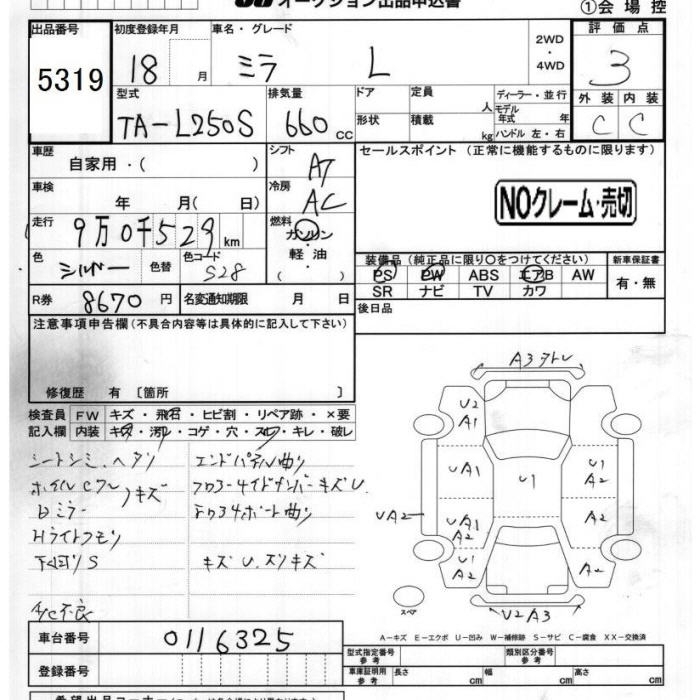 オークション出品申込書
①会場控
出品番号 初度登録年月 車名・グレード 評価点
5319 18 月 ミラ L 2WD・4WD 3
型式 排気量 ドア 定員 人 ディーラー・並行 外装 内装
TA-L250S 660 CC 形状 積載 kg モデル年式 年 ハンドル 左・右 C C
車歴 自家用・( ) シフト AT セールスポイント (正常に機能するものに限ります)
車検 年 月( 日) 冷房 AC NOクレーム・売切
走行 9万0千529km 燃料 ガソリン・軽油( )
色 シルバー 色替 色コード S28
装備品(純正品に限り○をつけてください) 新車保証書
PS PW ABS エアB AW 有・無
SR ナビ TV カワ
R券 8670円 名変通知期限 月 日 後日品
注意事項申告欄(不具合内容等は具体的に記入して下さい)
修復歴 有 〔箇所 〕
検査員 FW キズ・飛石・ヒビ割・リペア跡・×要
記入欄 内装 キズ・汚れ・コゲ・穴・スレ・キレ・破レ
シートシミ、ヘタリ
キズ
ミラー
Hライトクモリ
下回りS
A/C不良
エンドパネル曲り
キズU.
曲り
キズ U.スリキズ
A3
U2
A1
UA1
U1
U1
A2
UA2
UA1
A2
A2
U1
A2
A2
U2A3
スペア
A-キズ E-エクボ U-凹み W-補修跡 S-サビ C-腐食 XX-交換済
車台番号 0116325
登録番号
型式指定番号 参考 類別区分番号 参考
車庫証明用 参考 長さ cm 幅 cm 高さ cm
希望出品コーナー